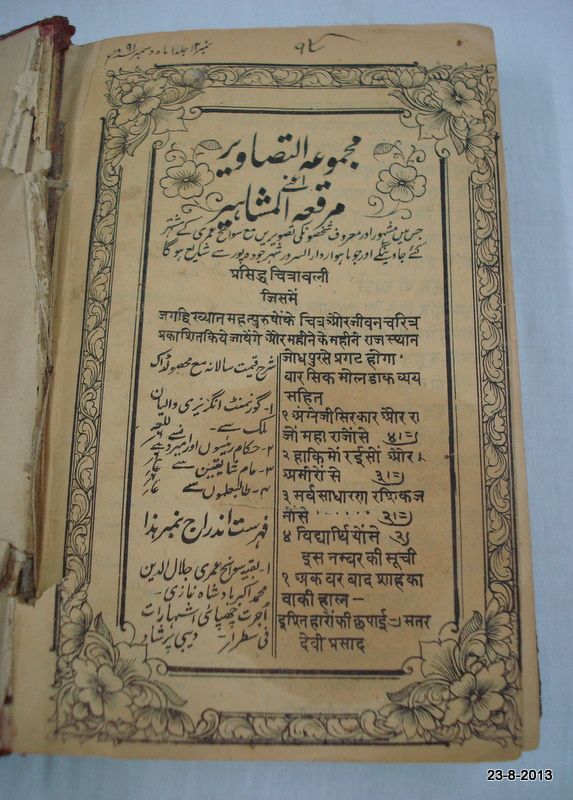 نمبر ۱۲ جلد ۱ ماہ دسمبر ۱۸۹۱
مجموعہ التصاویر
یعنے
مرقعہ المشاہیر
جس میں مشہور اور معروف شخصونکی تصویریں مع سوانح عمری کے مشتہر
کئے جاوینگے اور جو ماہوار دارالسرور شہر جودہ پور سے شایع ہو گا
प्रसिद्ध चित्रावली
जिसमें
जगद्विख्यान महत्पुरुषोंके चित्र और जीवन चरित्र
प्रकाशित किये जायेंगे और महीने के महीने राजस्थान
जोधपुरसे प्रगट होगा
شرح قیمت سالانہ مع محصولڈاک
۱- گورنمنٹ انگریزی و والیان
ملک سے -
۲- حکام رئیسوں اور امیروں سے
۳- عام شایقین سے
۴- طالبعلموں سے
فہرست اندراج نمبر ہذا
۱- بقیہ سوانح عمری جلال الدین
محمد اکبر بادشاہ غازی -
اجرت چھپائی اشتہارات
فی سطر ار - دیبی پرشاد
वारसिक मोल डाक व्यय
सहित
१ अंग्रेजी सरकार और रा
जों महाराजोंसे ४।=)
२ हाकिमों रईसों और
अमीरों से ३।=)
३ सर्वसाधारण रशिक ज
नोंसे ...... २।=)
४ विद्यार्थियोंसे २)
इस नम्बर की सूची
१ अकबर बादशाह का
बाकी हाल-
इश्तिहारोंकी छपाई -) सतर
देवी प्रसाद
23-8-2013